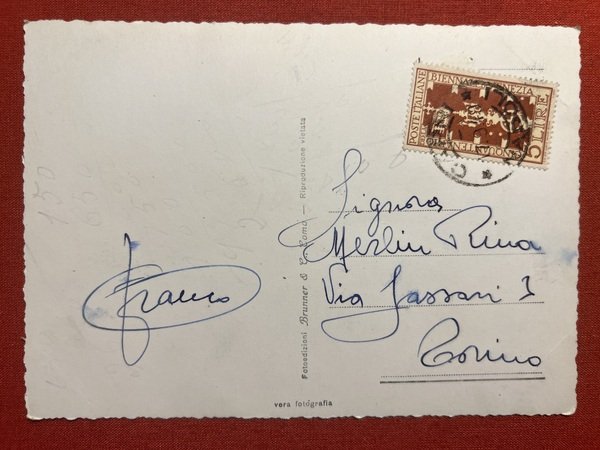 POSTE ITALIANE BIENNALE VENEZIA
5 LIRE
Signora
Merlin Rina
Via Sassari 3
Torino
Franco
Fotoedizioni Brunner & C. Como — Riproduzione vietata
vera fotografia